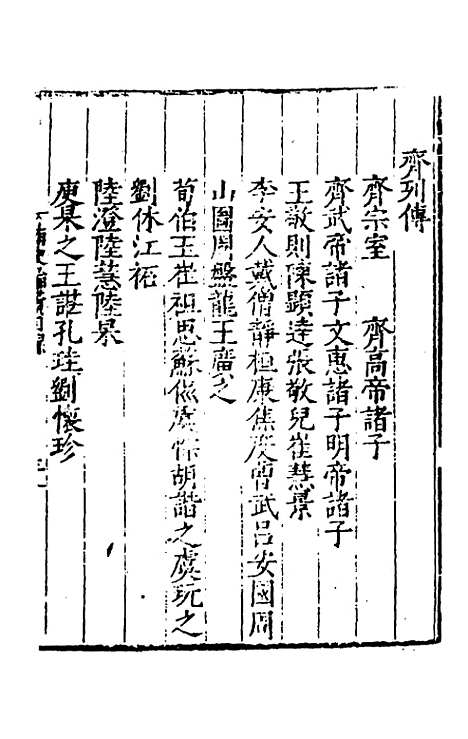 齊列傳
齊宗室　齊高帝諸子
齊武帝諸子文惠諸子明帝諸子
王敬則陳顯達張敬兒崔慧景
李安人戴僧靜桓康焦度曹武呂安國周
山圖周盤龍王廣之
荀伯玉崔祖思蘇侃虞悰胡諧之虞玩之
劉休江祏
陸澄陸慧陸杲
庾杲之王諶孔珪劉懷珍